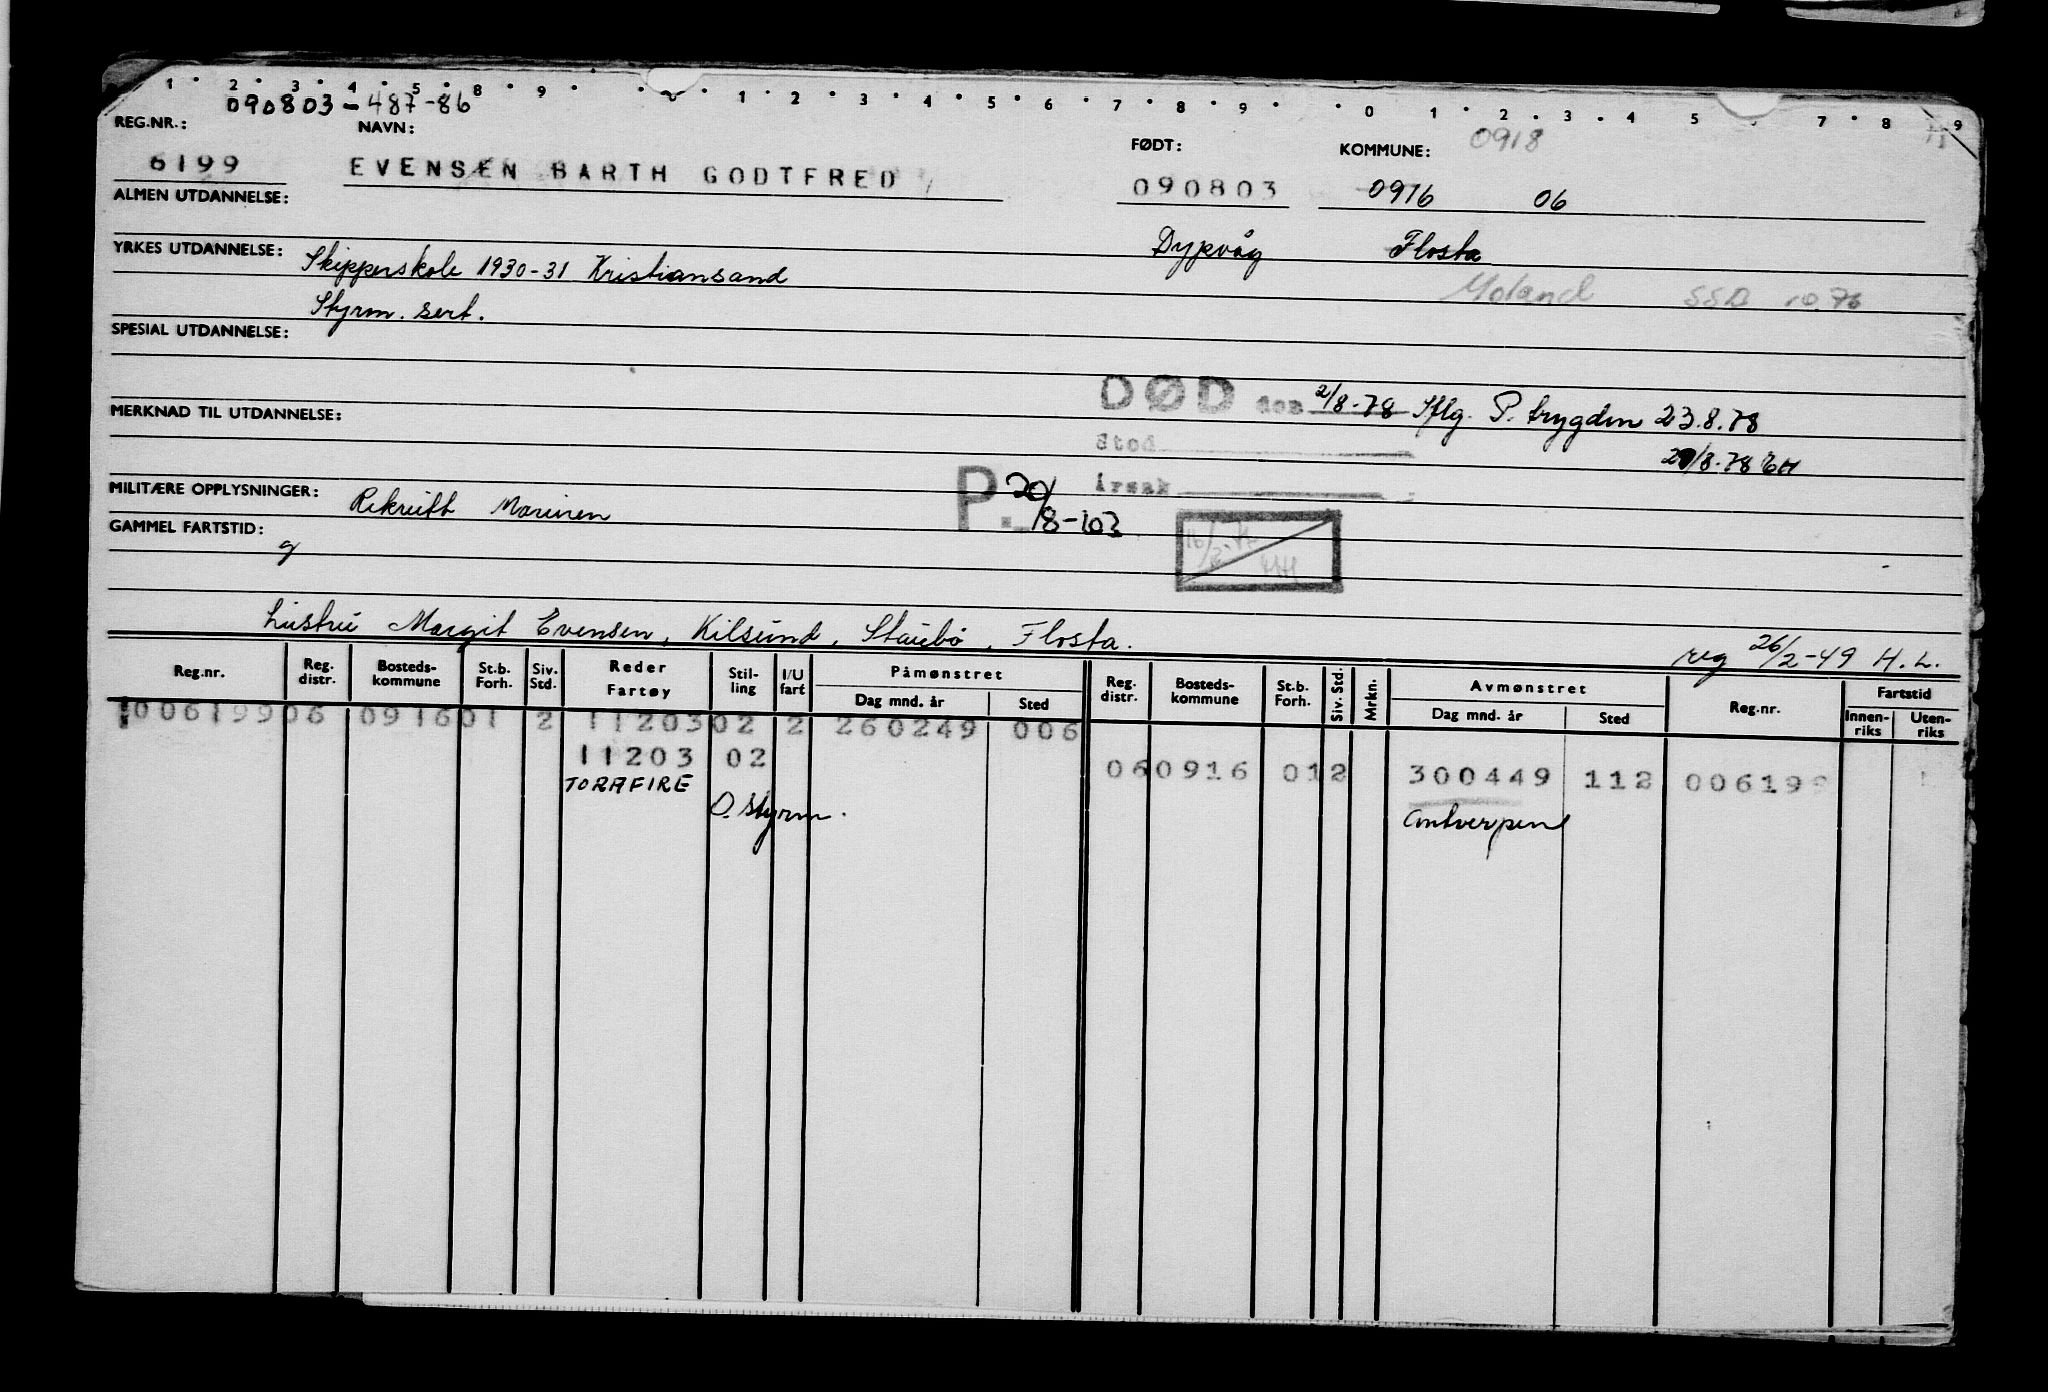 1 2 3 4 5 8 9 1 2 3 4 5 6 7 8 9 0 1 2 3 4 5 7 8 9
090803-487-86
REG.NR.: NAVN: FØDT: KOMMUNE: 0918
6199 EVENSEN BARTH GODTFRED 090803 0916 06
ALMEN UTDANNELSE:
Dypvåg Flosta
YRKES UTDANNELSE: Skipperskole 1930-31 Kristiansand
Moland SSD 10.76
Styrm. sert.
SPESIAL UTDANNELSE:
DØD den 2/8-78 Iflg. P. trygden 23.8.78
MERKNAD TIL UTDANNELSE:
Sted
29/8-78
Årsak
MILITÆRE OPPLYSNINGER: Rekrutt Marinen
P. 20/8-103
GAMMEL FARTSTID:
g
hustru Margit Evensen, Kilsund, Staubø, Flosta.
reg 26/2-49 H.L.
Reg.nr. Reg. distr. Bosteds-kommune St.b. Forh. Siv. Std. Reder Fartøy Stil-ling I/U fart Påmønstret Dag mnd. år Sted Reg. distr. Bosteds-kommune St.b. Forh. Siv. Std. Mrkn. Avmønstret Dag mnd. år Sted Reg.nr. Fartstid Innen-riks Uten-riks
1006199 06 0916 01 2 11203 02 2 260249 006
11203 02 06 0916 01 2 300449 112 006199
TORAFIRE
O. styrm. Antverpen